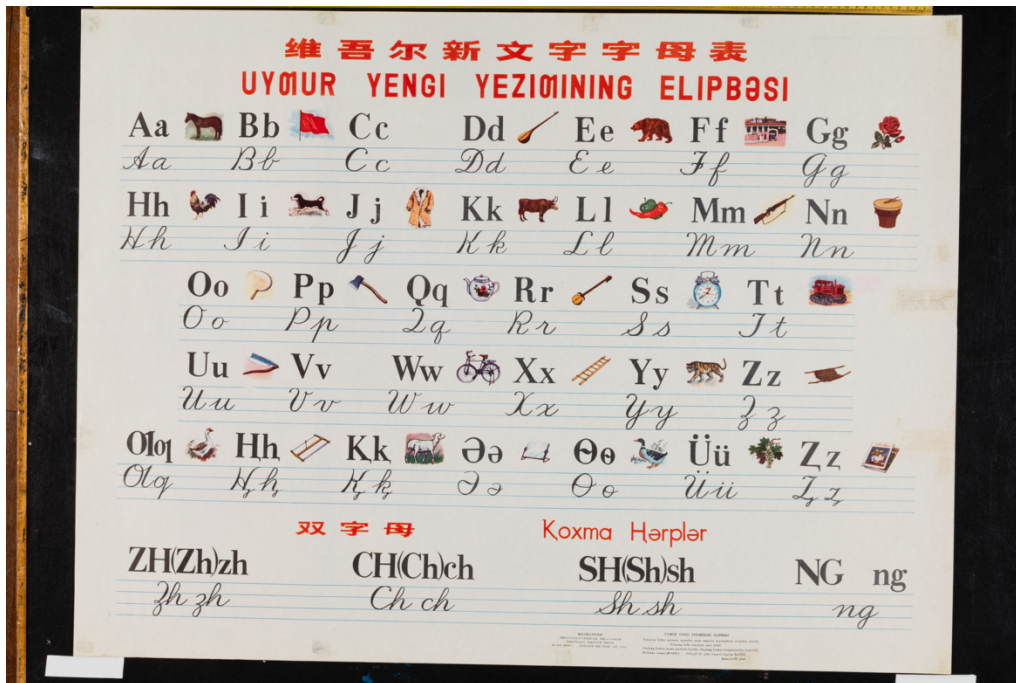 维吾尔新文字字母表
UYƢUR YENGI YEZIƢINING ELIPBƏSI
Aa Bb Cc Dd Ee Ff Gg
Aa Bb Cc Dd Ee Ff Gg
Hh Ii Jj Kk Ll Mm Nn
Hh Ii Jj Kk Ll Mm Nn
Oo Pp Qq Rr Ss Tt
Oo Pp Qq Rr Ss Tt
Uu Vv Ww Xx Yy Zz
Uu Vv Ww Xx Yy Zz
Ƣƣ Ⱨⱨ Ⱪⱪ Əə Ɵɵ Üü Ⱬⱬ
Ƣƣ Ⱨⱨ Ⱪⱪ Əə Ɵɵ Üü Ⱬⱬ
双字母 Koxma Ⱨərplər
ZH(Zh)zh CH(Ch)ch SH(Sh)sh NG ng
Zh zh Ch ch Sh sh ng